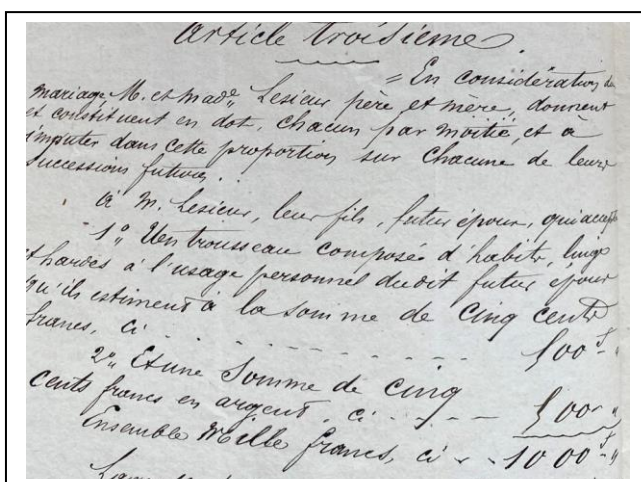 Article troisième.
= En considération du
mariage, M. et Made. Lesieur père et mère, donnent
et constituent en dot, chacun par moitié, et à
imputer dans cette proportion sur chacune de leurs
successions futures.
à M. Lesieur, leur fils, futur époux, qui accepte
1° Un trousseau composé d'habits, linge
et hardes à l'usage personnel dudit futur époux
qu'ils estiment à la somme de cinq cents
francs, ci - - - - - - - - - - - - 500 f. "
2° Et une somme de cinq
cents francs en argent, ci - - - - - 500 "
Ensemble Mille francs, ci - - 1000 f. "